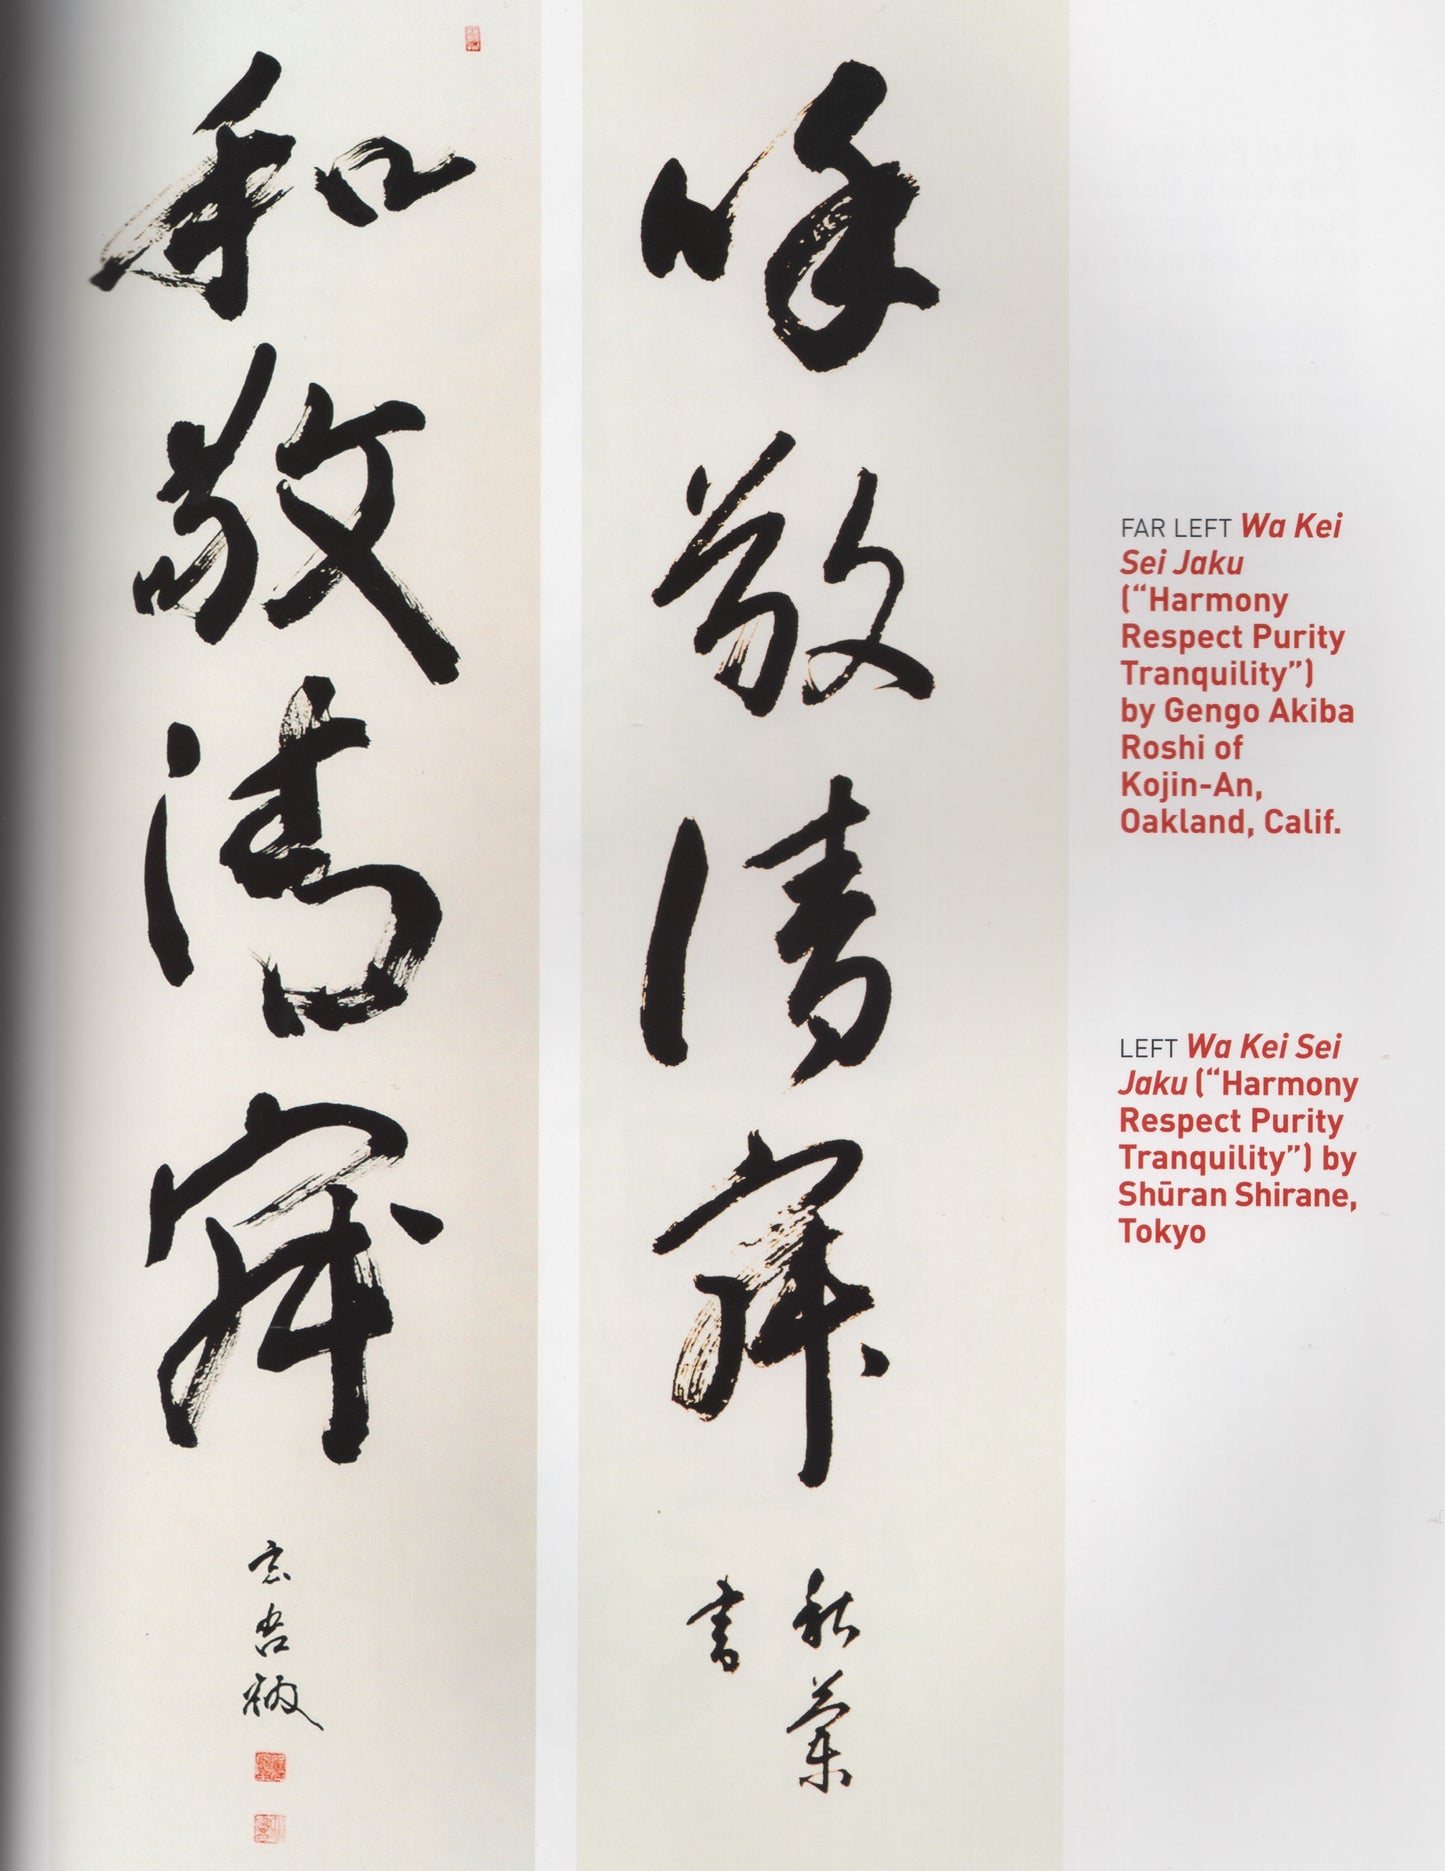 和敬清寂
玄吾衲
咊敬清寂
秋蘭
書
FAR LEFT Wa Kei
Sei Jaku
(“Harmony
Respect Purity
Tranquility”)
by Gengo Akiba
Roshi of
Kojin-An,
Oakland, Calif.
LEFT Wa Kei Sei
Jaku (“Harmony
Respect Purity
Tranquility”) by
Shūran Shirane,
Tokyo